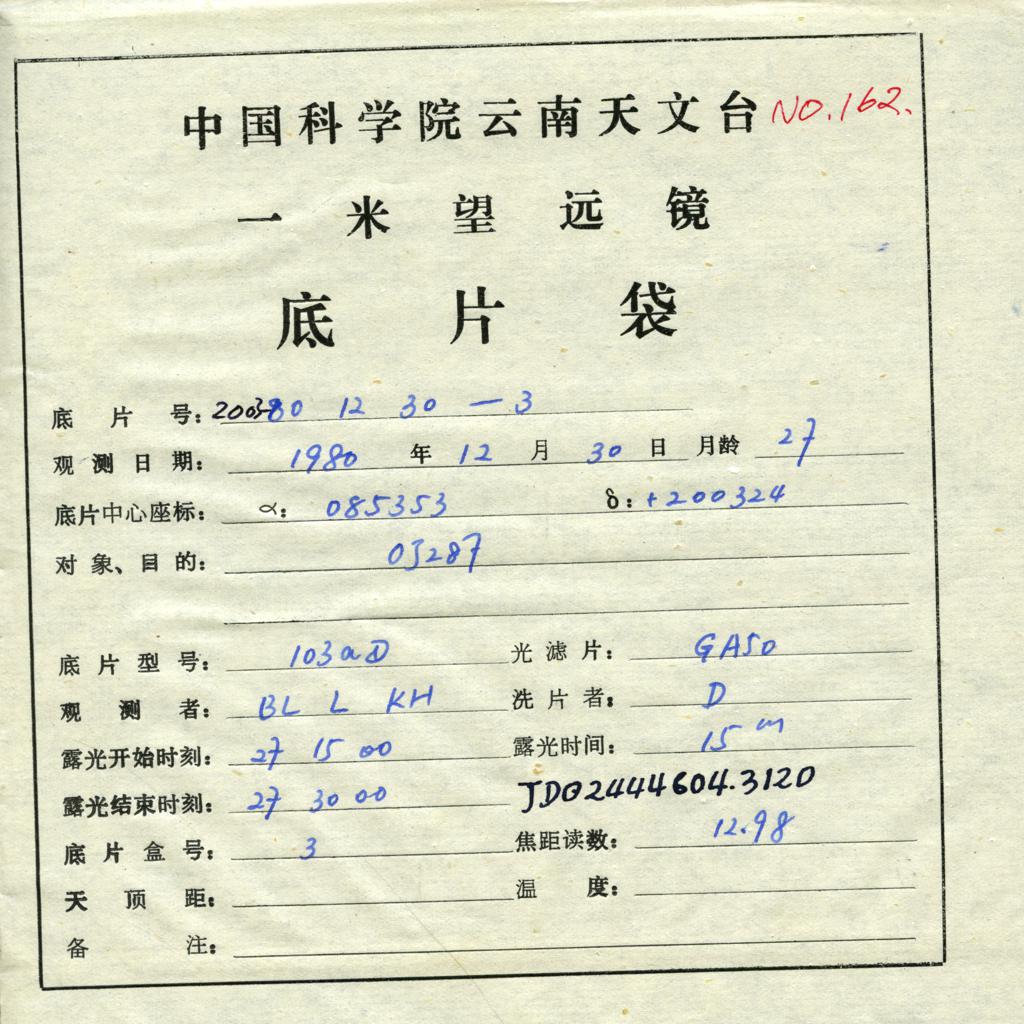 中国科学院云南天文台 NO.162.
一米望远镜
底片袋
底片号: 2003-80 12 30 — 3
观测日期: 1980 年 12 月 30 日 月龄 27
底片中心座标: α: 085353 δ: +200324
对象、目的: OJ287
底片型号: 103aD 光滤片: GA50
观测者: BL L KH 洗片者: D
露光开始时刻: 27 15 00 露光时间: 15 m
露光结束时刻: 27 30 00 JD⊙2444604.3120
底片盒号: 3 焦距读数: 12.98
天顶距: 温度:
备注: